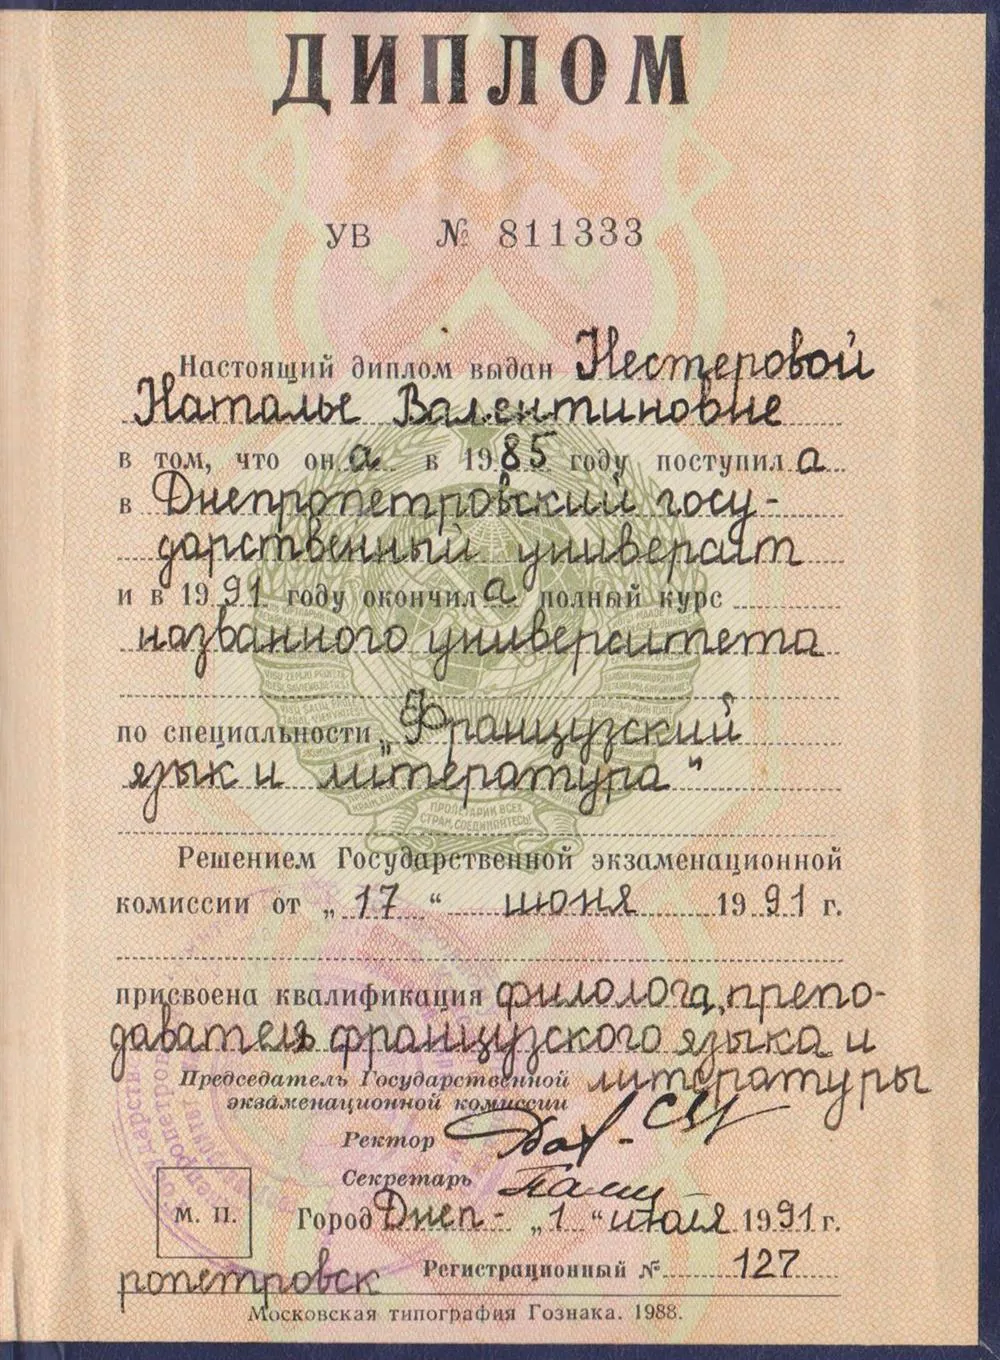 ДИПЛОМ
УВ № 811333
Настоящий диплом выдан Нестеровой
Наталье Валентиновне
в том, что он а в 1985 году поступил а
в Днепропетровский госу-
дарственный университ
и в 1991 году окончил а полный курс
названного университета
по специальности „Французский
язык и литература"
Решением Государственной экзаменационной
комиссии от „17“ июня 1991 г.
присвоена квалификация филолога, препо-
давателя французского языка и
литературы
Председатель Государственной
экзаменационной комиссии
Ректор
Секретарь
М. П.
Город Днеп- „1“ июля 1991 г.
ропетровск
Регистрационный № 127
Московская типография Гознака. 1988.
ПРОЛЕТАРИИ ВСЕХ
СТРАН, СОЕДИНЯЙТЕСЬ!